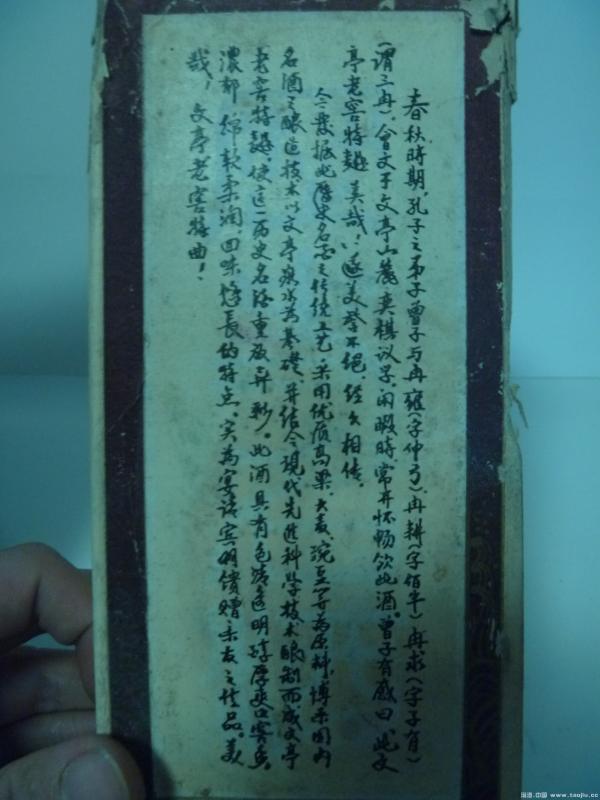 春秋時期,孔子之弟子曾子与冉雍(字仲弓)、冉耕(字伯牛)冉求(字子有)
(谓三冉),會文于文亭山麓奕棋议学,闲暇時常开怀畅饮此酒。曾子有感曰:此文
亭老窖特麯美哉!遂美誉不绝,经久相传。
今 根据此歷史名酒之传统工艺,采用优质高粱、大麦、豌豆等为原料,博采国内
名酒之酿造技术,以文亭泉水为基礎,并结合現代先進科学技术酿制而成文亭
老窖特麯,使这一历史名酒重放异彩。此酒具有色清透明,醇厚爽口,窖香
濃郁,绵軟柔润,回味悠長的特点。实为宴请宾朋馈赠亲友之佳品。美
哉,文亭老窖特曲!
海酒.中国 www.taojiu.cc